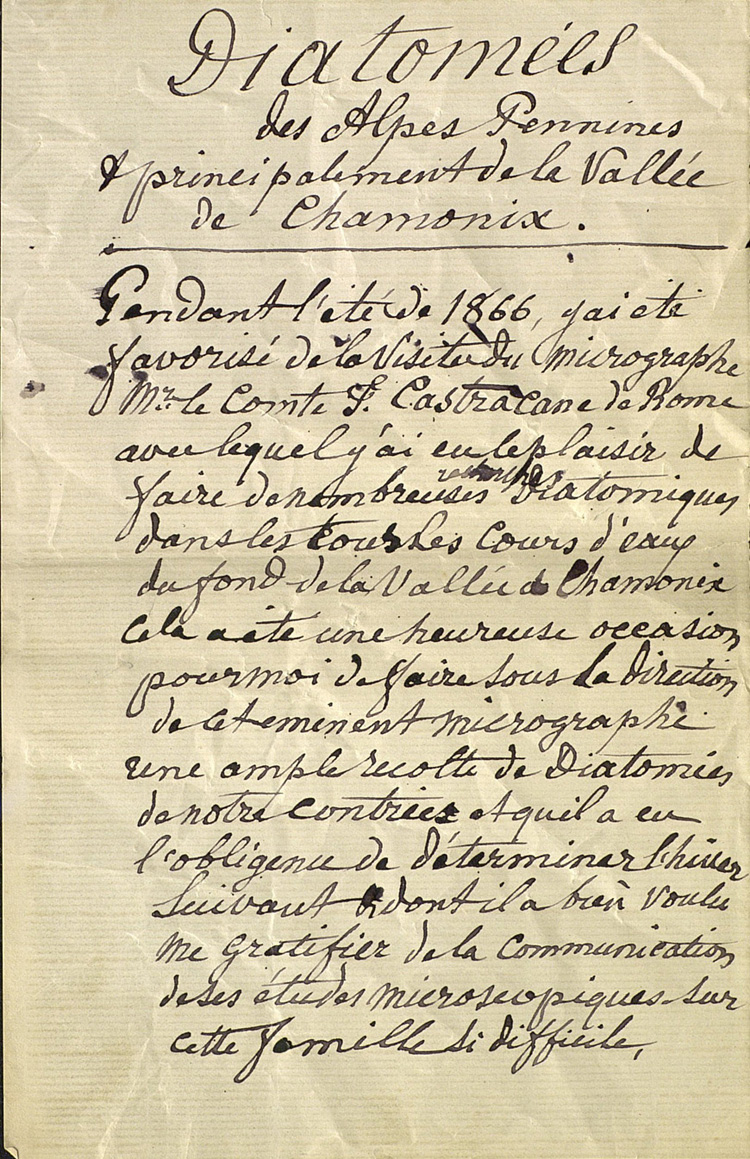 Diatomées
des Alpes Pennines
& principalement de la Vallée
de Chamonix.
Pendant l'été de 1866, j'ai été
favorisé de la Visite du micrographe
Mr. le Comte F. Castracane de Rome
avec lequel j'ai eu le plaisir de
recherches
faire de nombreuses Diatomiques
dans les tous les cours d'eau
du fond de la Vallée de Chamonix
cela a été une heureuse occasion
pour moi de faire sous la direction
de cet eminent micrographe
une ample recolte de Diatomées
de notre contrée et qu'il a eu
l'obligence de déterminer l'hiver
suivant & dont il a bien voulu
me gratifier de la communication
de ses études microscopiques sur
cette famille si difficile,